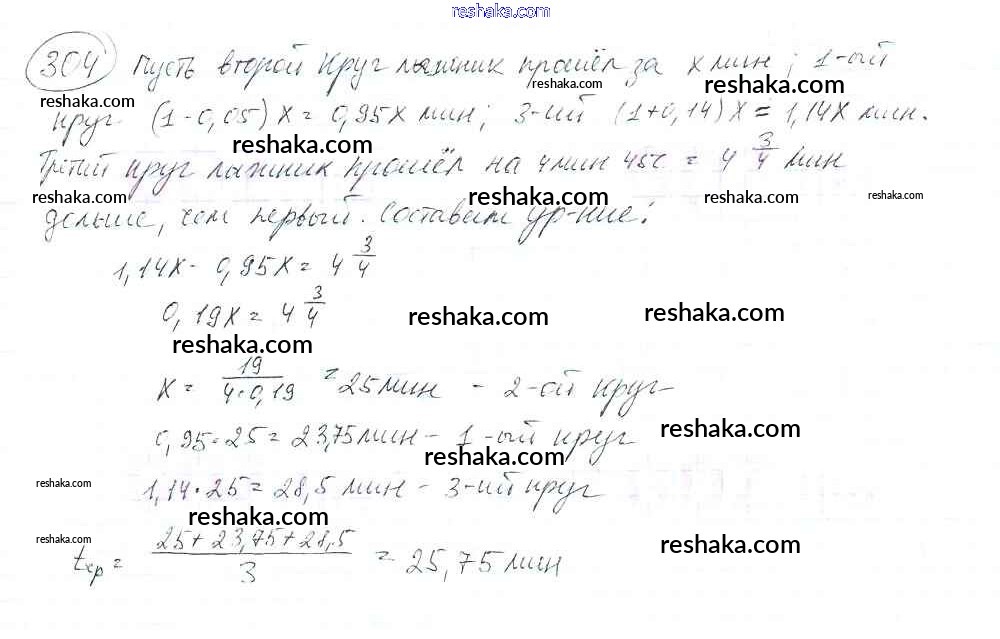 reshaka.com
304 Пусть второй круг лыжник прошёл за x мин; 1-ый
reshaka.com reshaka.com reshaka.com
круг (1-0,05)x = 0,95x мин; 3-ий (1+0,14)x = 1,14x мин.
reshaka.com reshaka.com
Третий круг лыжник прошёл на 4 мин 45с = 4 3/4 мин
reshaka.com reshaka.com reshaka.com reshaka.com
дольше, чем первый. Составим ур-ние:
1,14x - 0,95x = 4 3/4
0,19x = 4 3/4
reshaka.com reshaka.com
reshaka.com
x = 19/(4·0,19) = 25 мин - 2-ой круг
0,95·25 = 23,75 мин - 1-ый круг
reshaka.com
reshaka.com
1,14·25 = 28,5 мин - 3-ий круг
reshaka.com
reshaka.com
tср = (25+23,75+28,5)/3 = 25,75 мин
reshaka.com reshaka.com